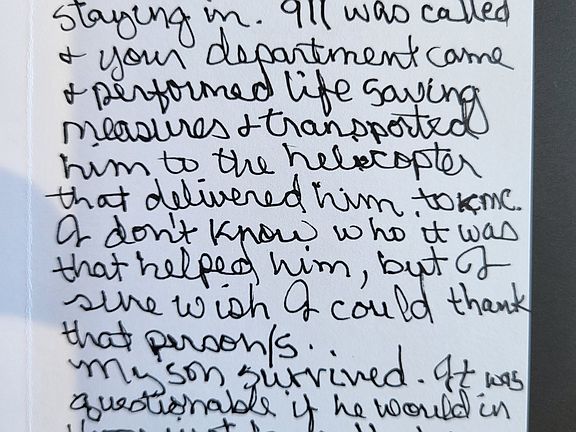 staying in. 911 was called
& your department came
& performed life saving
measures & transported
him to the helecopter
that delivered him to KMC.
I don't know who it was
that helped him, but I
sure wish I could thank
that person/s.
My son survived. It was
questionable if he would in